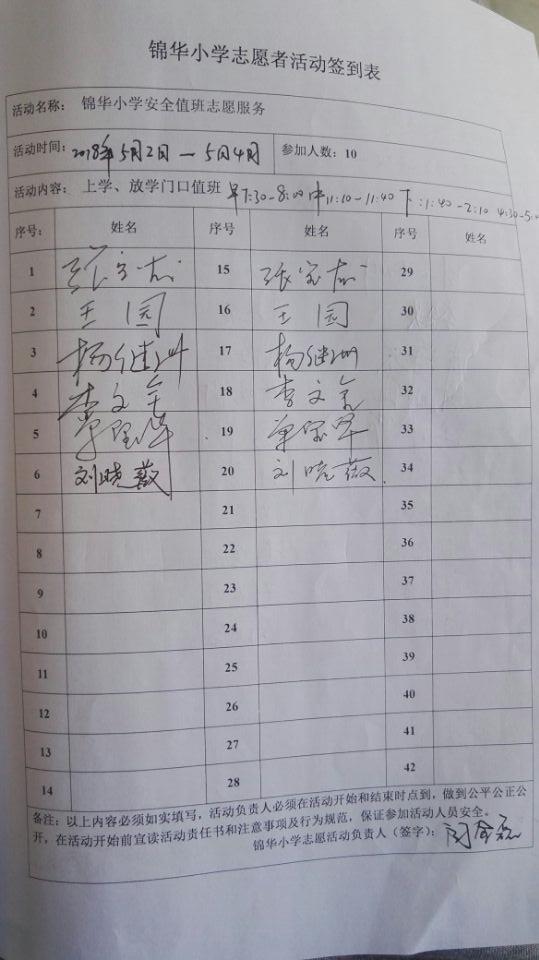 锦华小学志愿者活动签到表
活动名称： 锦华小学安全值班志愿服务
活动时间：2018年5月2日 — 5月4月 参加人数：10
活动内容： 上学、放学门口值班 早7:30-8:00 中11:10-11:40 下:1:40-2:10 4:30-5:0
序号： 姓名 序号 姓名 序号 姓名
1 15 29
2 王园 16 王园 30
3 17 31
4 李文 18 李文 32
5 19 33
6 刘晓薇 20 刘晓薇 34
7 21 35
8 22 36
9 23 37
10 24 38
11 25 39
12 26 40
13 27 41
14 28 42
备注：以上内容必须如实填写，活动负责人必须在活动开始和结束时点到，做到公平公正公
开，在活动开始前宣读活动责任书和注意事项及行为规范，保证参加活动人员安全。
锦华小学志愿活动负责人（签字）：